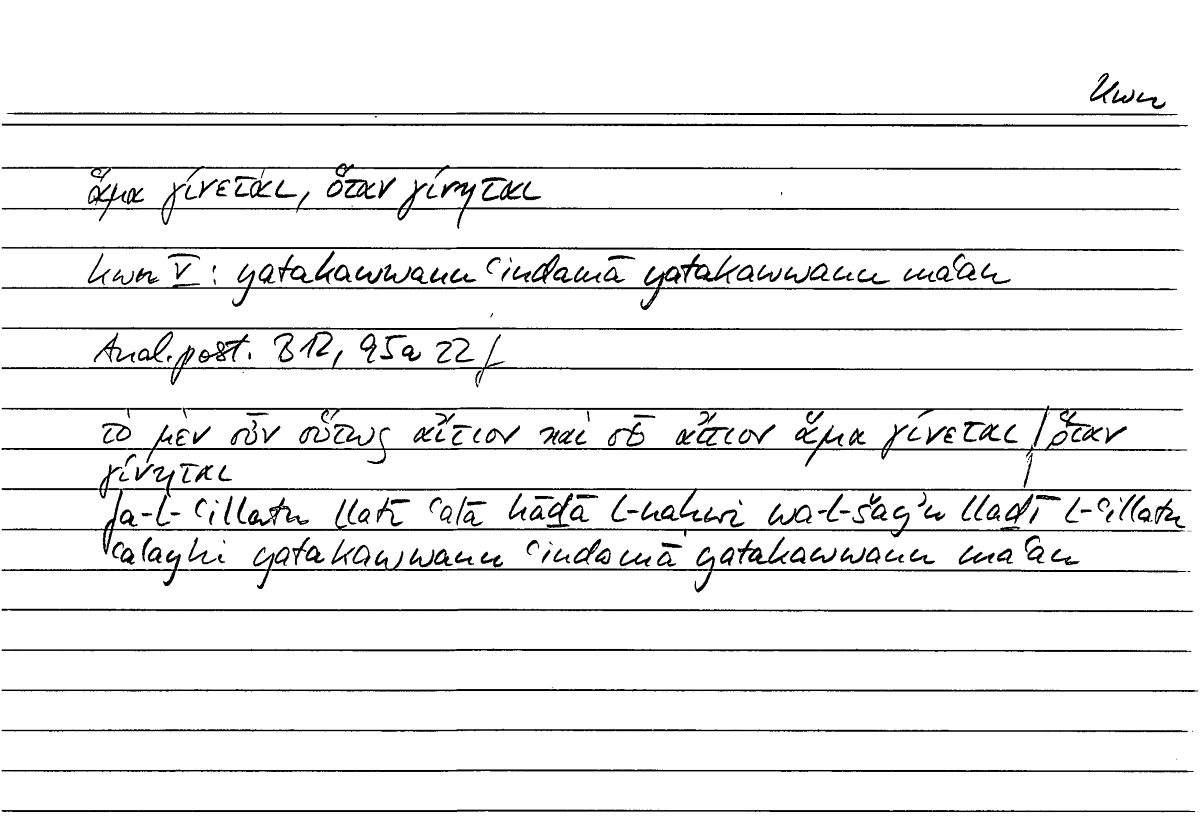 kwn
ἅμα γίνεται, ὅταν γίνηται
kwn V: yatakawwanu ʿindamā yatakawwanu maʿan
Anal. post. B 12, 95a 22 f
τὸ μὲν οὖν οὕτως αἴτιον καὶ οὗ αἴτιον ἅμα γίνεται / ὅταν
γίνηται
fa-l-ʿillatu llatī ʿalā hāḏā l-naḥwi wa-l-šayʾu llaḏī l-ʿillatu
ʿalayhi yatakawwanu ʿindamā yatakawwanu maʿan